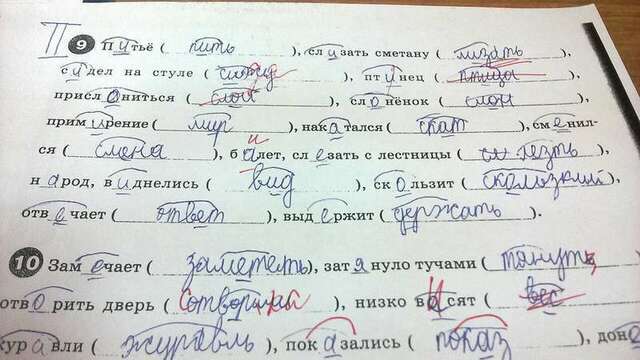 9 Питьё ( пить ), слизать сметану ( лизать ),
сидел на стуле ( ), птинец ( птица ),
прислониться ( слон ), слонёнок ( слон ),
примирение ( мир ), накатался ( скат ), сменил-
ся ( смена ), балет, слезать с лестницы ( ),
народ, виднелись ( вид ), скользит ( скользкий ),
отвечает ( ответ ), выдержит ( держать ).
10 Замечает ( замететь ), затянуло тучами ( тянуть ),
отворить дверь ( ), низко висят ( вес ),
журавли ( журавль ), показались ( показ ),